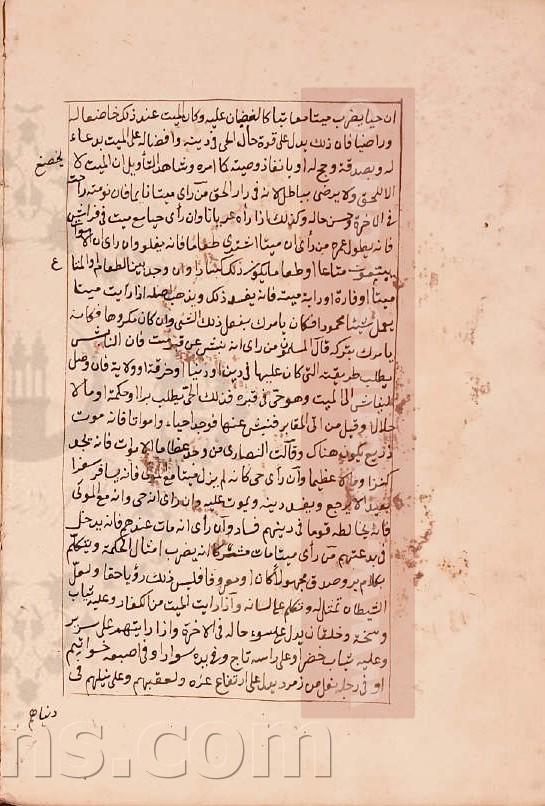 ان حيا يضرب ميتا معاتبا كالغضبان عليه وكان الميت عند ذلك خاضعا له
وراضيا فان ذلك يدل على قوة حال الحي في دينه وافضاله على الميت بدعاء
له وبصدقة وحج له او بانفاذ وصيته كامره وشاهد التأويل ان الميت لا يخضع
الا للحق ولا يرضى بباطل لانه في دار الحق من رأى ميتا نايما فان نومته راحته
في الآخرة وحسن حاله وكذلك اذا راه عريانا وان رأى حيا مع ميت في فراش
فانه يطول عمره من رأى ان ميتا اشترى طعاما فانه يغلو وان رأى ان الاموات
يبيعون متاعا او طعاما يكون ذلك كسادا وان وجد بين الطعام او المتاع
ميتا او فارة او دابة ميتة فانه يفسد ذلك ويذهب اصله اذا رايت ميتا
يعمل شيئا محمودا فكان يامرك بفعل ذلك الشي وان كان مكروها فكانه
يامرك بتركه قال المسلمون من رأى انه ينبش عن قبر ميت فان النابش
يطلب طريقته التي كان عليها في دين او دنيا او حرفة او ولاية فان وصل
النباش الى الميت وهو حي في قبره فذلك الحي يطلب برا وحكمة او مالا
حلالا وقيل من اتى المقابر فنبش عنها فوجد احياء وامواتا فانه موت
ذريع يكون هناك وقالت النصارى من وجد عظاما لاموات فانه يجد
كنزا ومالا عظيما وان رأى حي كانه لم يزل ميتا مع موتى فانه يسافر سفرا
بعيدا لا يرجع ويفسد دينه ويموت عليه وان راى انه حي وانه مع الموتى
فانه يخالطه قوما في دينهم فساد وان رأى انه مات عندهم فانه يدخل
في بدعتهم من رأى ميتا مات مشركا انه يضرب امثال الحكمة ويتكلم
بكلام بر وصدق مجهولا كان او معروفا فليس ذلك رؤيا حقا ولعل
الشيطان تمثل له وتكلم على لسانه واذا رايت الميت من الكفار وعليه ثياب
وسخة وخلقان يدل على سوء حاله في الاخرة واذا رايتهم على سرير
وعليه ثياب خضر او على راسه تاج وفي يده سوار او في اصبعه خواتيم
او في رجله نعل من زمرد يدل على ارتفاع عزه ولعقبهم وعلى نيلهم في
دنياهم
ns.com